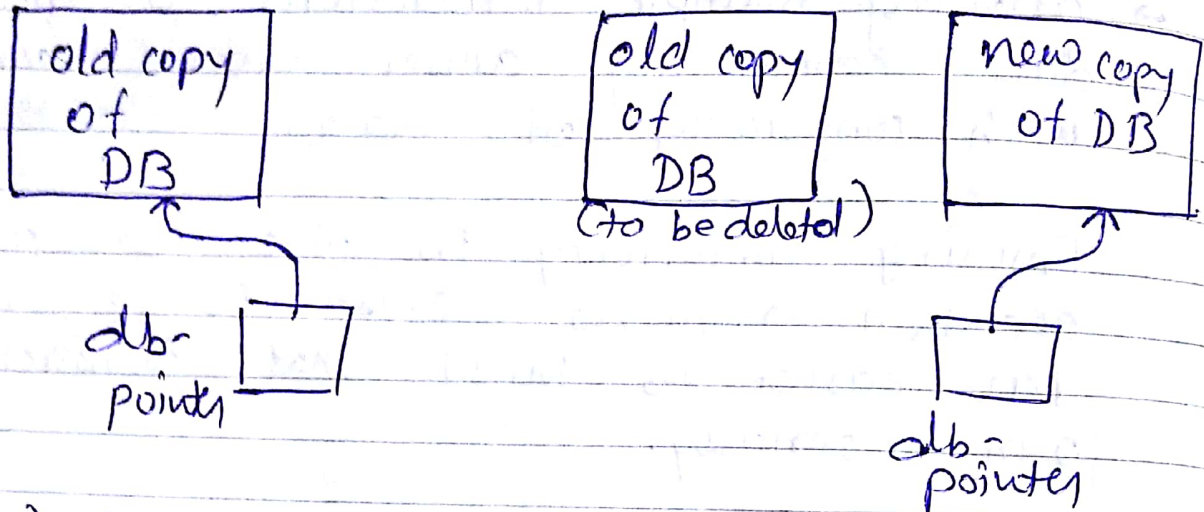 old copy
of
DB
db-
pointer
old copy
of
DB
(to be deleted)
new copy
of DB
db-
pointer